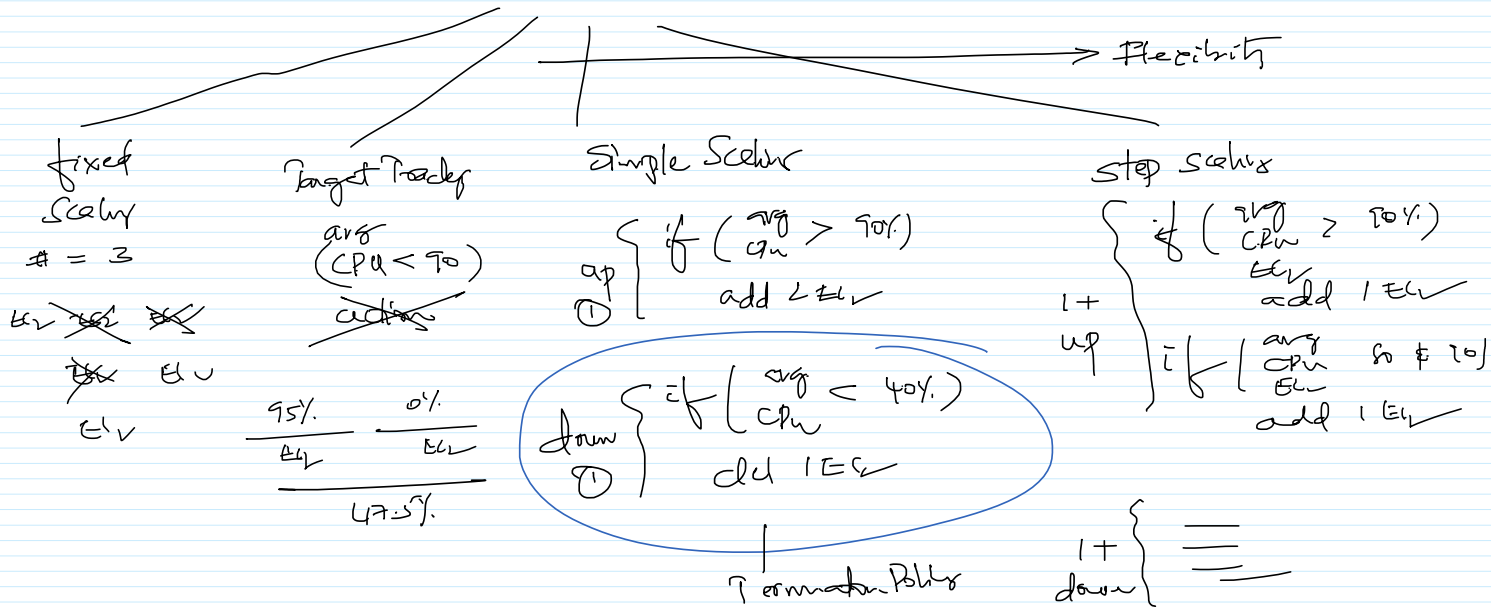 Flexibility
fixed
Scaling
# = 3
EC2 EC2 EC2
EC2 EC2
EC2
Target Tracking
avg
(CPU < 90)
action
95% 0%
EC2 EC2
47.5%
Simple Scaling
up
①
if ( avg CPU > 90%)
add 2 EC2
down
①
if ( avg CPU < 40%)
del 1 EC2
Termination Policy
Step Scaling
1+
up
if ( avg CPU > 90%)
EC2
add 1 EC2
if ( avg CPU
EC2
add 1 EC2
1+
down